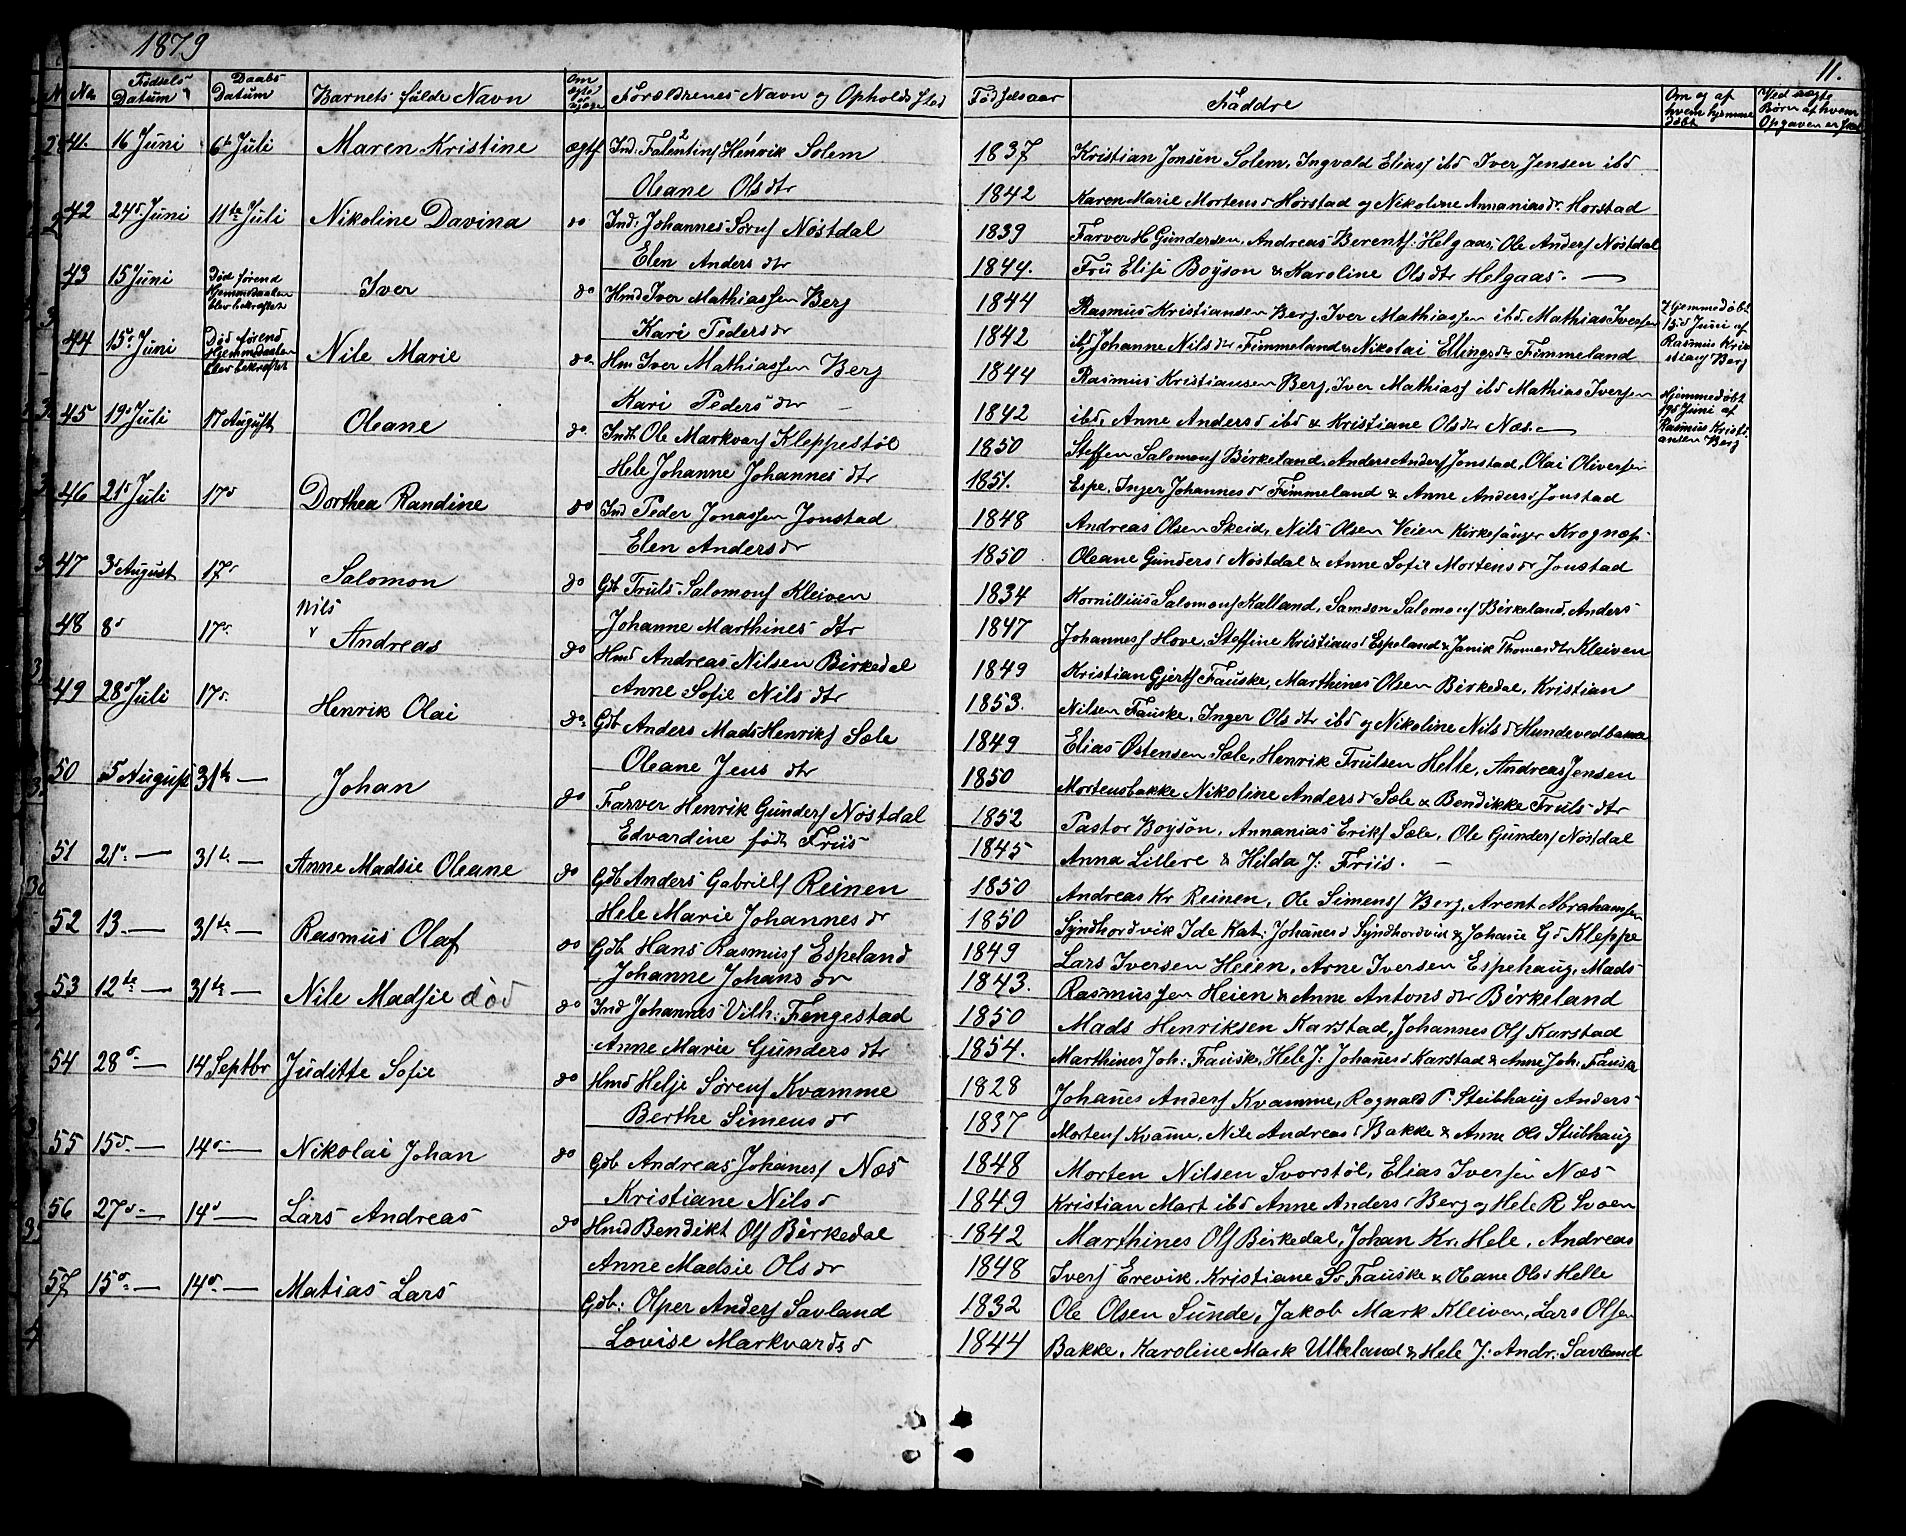 1879
11.
No. Fødsels Datum Daabs Datum Barnets fulde Navn Om ægte el. uægte Forældrenes Navn og Opholds Sted Fødselsaar Faddre Om og af hvem hjemme døbt Ved uægte Børn af hvem Opgaven er
41. 16 Juni 6t Juli Maren Kristine ægtf Ind: Falentins Henrik Solem 1837 Kristian Jonsen Solem, Ingvald Eliass ibd Iver Jensen ibd
Oleane Olsdtr 1842 Karen Marie Mortens d Horstad og Nikoline Annanias dr. Horstad
42 24d Juni 11te Juli Nikoline Davina do Ind: Johannes Sørns Nøstdal 1839 Farver H Gundersen, Andreas Berents: Helgaas, Ole Anders Nøstdal
Elen Anders dtr 1844. Fru Elise Boyson & Karoline Olsdtr Helgaas. —
43 15 Juni Død førend Hjemmedaaben blev bekræftet Iver do Hmd Iver Mathiassen Berg 1844 Rasmus Kristiansen Berg, Iver Mathiassen ibd. Mathias Iversen Hjemmedøbt 15d Juni af Rasmus Kristians Berg
Kari Pedersdr 1842 ib Johanne Nils dtr Fimmeland & Nikolai Ellings dtr Fimmeland
44 15d Juni Død førend Hjemmedaaben blev bekræftet Nile Marie do. Hm Iver Mathiassen Berg 1844 Rasmus Kristiansen Berg, Iver Mathiass ibd Mathias Iversen Hjemmedøbt 19d Juni af Rasmus Kristiansen Berg
Kari Peders dr — 1842 ibd, Anne Anders d ibd & Kristiane Olsdtr Næs. —
45 19d Juli 17 August Oleane do. Inds Ole Markvars Kleppestøl 1850 Steffen Salomons Birkeland, Anders Anders Jonstad, Olai Oliversen
Hele Johanne Johannes dtr 1851. Espe, Inger Johannes dr Fimmeland & Anne Anders d Jonstad
46 21d Juli 17d Dorthea Randine do Ind Peder Jonassen Jonstad 1848 Andreas Olsen Skeid, Nils Olsen Veien Kirkesanger Krognæs
Elen Anders dr 1850 Oleane Gunders d Nøstdal & Anne Sofie Mortens dr Jonstad
47 3d August 17d Salomon do Gdb Truls Salomons Kleiven 1834 Kornillius Salomons Kalland, Samson Salomons Birkeland, Anders
Johanne Marthines dtr 1847 Johanness Hove, Steffine Kristians d Espeland & Janik Thomes dtr Kleiven
48 8d 17d. Nils Andreas do Hmd Andreas Nilsen Birkedal 1849 Kristian Gjerts Fauske, Marthines Olsen Birkedal, Kristian
Anne Sofie Nils dtr 1853. Nilsen Fauske, Inger Ols dtr ibd og Nikoline Nils d Hundevedbakke
49 28d Juli 17d. Henrik Olai do. Gdb Anders Mads Henriks Sæle 1849 Elias Østensen Sæle, Henrik Trulsen Helle, Andreas Jensen
Oleane Jens dtr 1850 Mortensbakke Nikoline Anders dr Sæle & Bendikke Truls dtr
50 5 August 31te — Johan do Farver Henrik Gunders Nøstdal 1852 Pastor Boyson, Annanias Eriks Sæle, Ole Gunders Nøstdal
Edvardine født Friis 1845 Anna Lillere & Hilda J: Friis. —
51 21d — 31te — Anne Madsie Oleane do Gdb Anders Gabriels Reinen 1850 Andreas Kr Reinen, Ole Simenss Berg, Arent Abrahamsen
Hele Marie Johannes dr 1850 Syndhordvik Ide Kat: Johanes d Syndhordvik & Johane G d Kleppe
52 13. — 31te — Rasmus Olaf do Gdb Hans Rasmuss Espeland 1849 Lars Iversen Heien, Arne Iversen Espehaug, Mads
Johanne Johans dr 1843. Rasmussen Heien & Anne Antons dtr Birkeland
53 12te — 31te — Nile Madsie død do Ind Johannes Vilh: Fengestad 1850 Mads Henriksen Karstad, Johannes Ols Karstad
Anne Marie Gunders dtr 1854. Marthines Joh: Fauske, Hele J: Johanes d Karstad & Anne Joh. Fauske
54 28d — 14 Septbr Juditte Sofie do Hmd Helje Sørens Kvamme 1828 Johanes Anders Kvamme, Rognald P. Steibhaug Anders
Berthe Simens dr 1837 Mortens Kvamme, Nile Andreas d Bakke & Anne Ols Steibhaug
55 15d — 14d — Nikolai Johan do Gdb Andreas Johaness Næs 1848 Morten Nilsen Svorstøl, Elias Iversen Næs
Kristiane Nils d 1849 Kristian Mart ibd Anne Anders d Berg og Hele R Svoen
56 27d — 14d — Lars Andreas do Hmd Bendikt Ols Birkedal 1842 Marthines Ols Birkedal, Johan Kr. Hele, Andreas
Anne Madsie Ols dr 1848 Ivers Erevik, Kristiane Sd Fauske & Oleane Ols d Helle
57 15d — 14d — Matias Lars Gdb: Olper Anders Savland 1832 Ole Olsen Sunde, Jakob Mark Kleiven, Lars Olsen
Lovise Markvards d 1844 Bakke, Karoline Mark Ulleland & Hele J: Andr. Savland